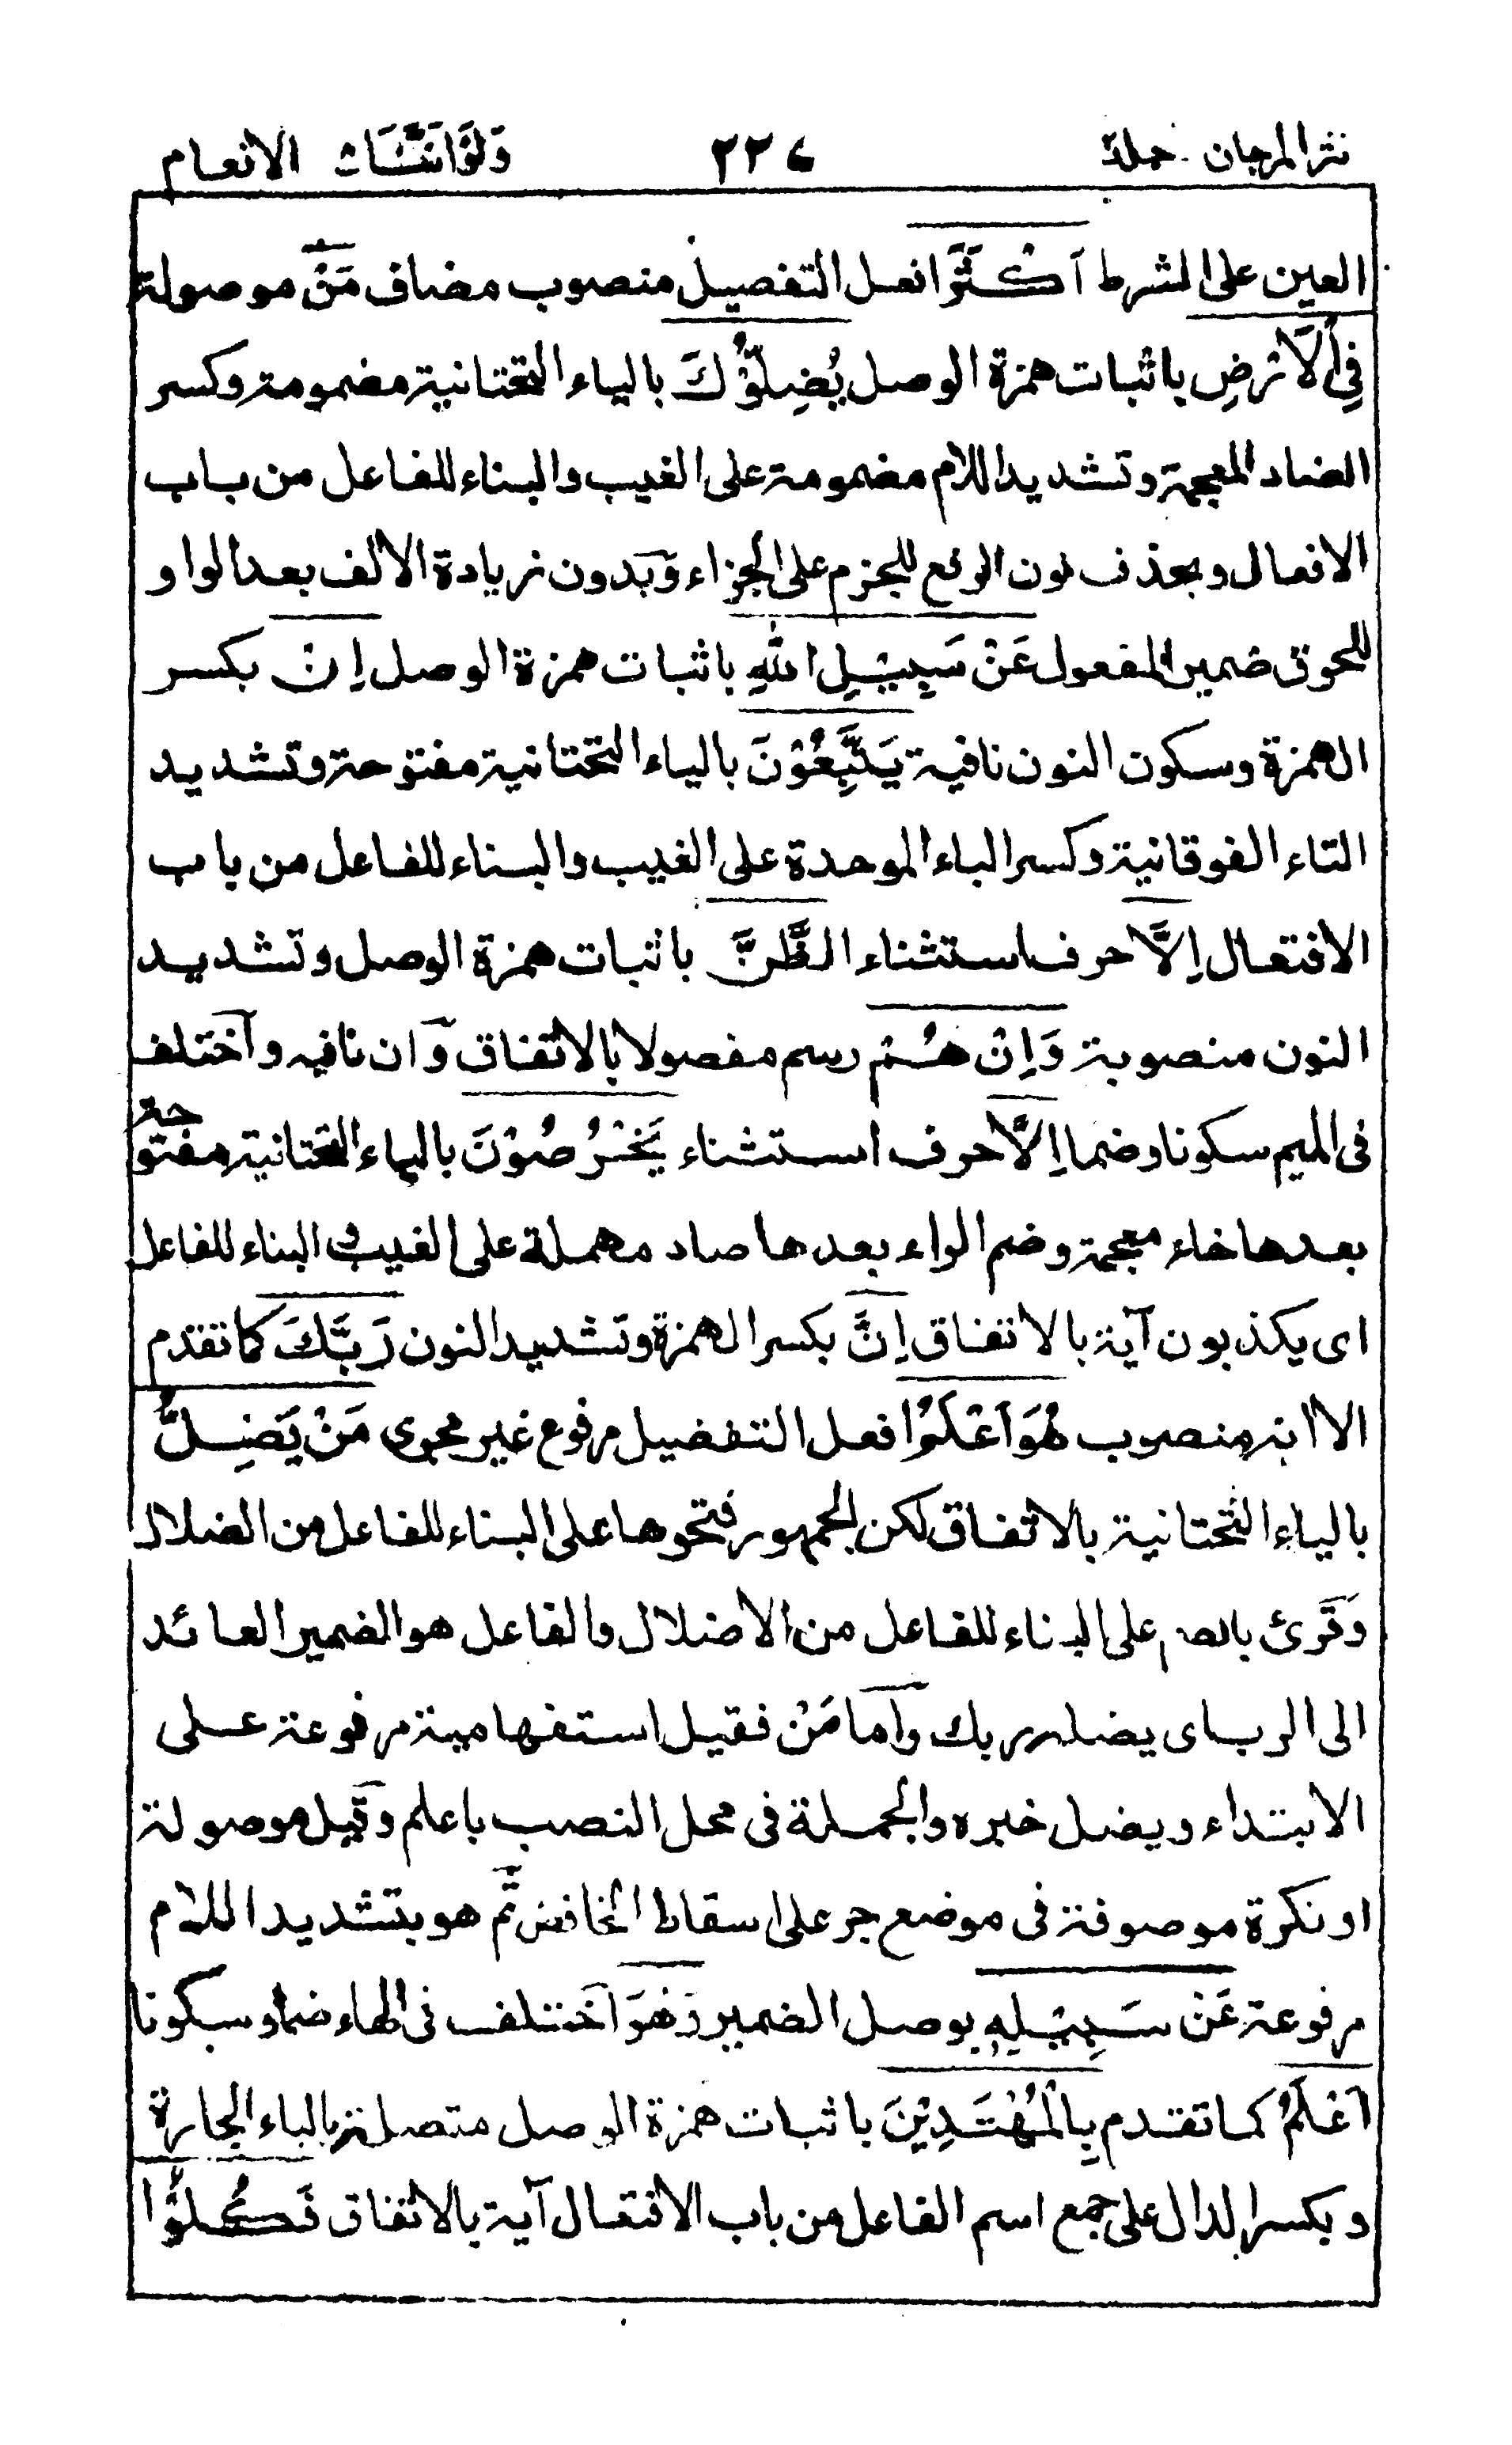 نثر المرجان جلد٢ ٢٢٧ وَلَوْ اَنَّنَا الانعام
العين على الشرط اَكْثَرَ افعل التفضيل منصوب مضاف مَنْ موصولة
فِي الْاَرْضِ باثبات همزة الوصل يُضِلُّوْكَ بالياء التحتانية مضمومة وكسر
الضاد المعجمة وتشديد اللام مضمومة على الغيب والبناء للفاعل من باب
الافعال وبحذف نون الرفع للجزم على الجزاء وبدون زيادة الالف بعد الواو
للحوق ضمير المفعول عَنْ سَبِيْلِ اللهِ باثبات همزة الوصل اِنْ بكسر
الهمزة وسكون النون نافية يَتَّبِعُوْنَ بالياء التحتانية مفتوحة وتشديد
التاء الفوقانية وكسر الباء الموحدة على الغيب والبناء للفاعل من باب
الافتعال اِلَّا حرف استثناء الظَّنَّ باثبات همزة الوصل وتشديد
النون منصوبة وَاِنْ هُمْ رسم مفصولا بالاتفاق وان نافيه واختلف
فى الميم سكونا وضما اِلَّا حرف استثناء يَخْرُصُوْنَ بالياء التحتانية مفتوحة
بعدها خاء معجمة وضم الراء بعدها صاد مهملة على الغيب والبناء للفاعل
اى يكذبون آية بالاتفاق اِنَّ بكسر الهمزة وتشديد النون رَبَّكَ كما تقدم
الا انه منصوب هُوَ اَعْلَمُ افعل التفضيل مرفوع غير مجرى مَنْ يَضِلُّ
بالياء التحتانية بالاتفاق لكن الجمهور فتحوها على البناء للفاعل من الضلال
وَقرئ بالضم على البناء للفاعل من الاضلال والفاعل هو الضمير العائد
الى الرب اى يضله ربك واما مَنْ فقيل استفهامية مرفوعة على
الابتداء ويضل خبره والجملة فى محل النصب باعلم وقيل موصولة
او نكرة موصوفة فى موضع جر على اسقاط الخافض ثم هو بتشديد اللام
مرفوعة عَنْ سَبِيْلِهٖ بوصل الضمير وَهُوَ اختلف فى الهاء ضما وسكونا
اَعْلَمُ كما تقدم بِالْمُهْتَدِيْنَ باثبات همزة الوصل متصلة بالباء الجارة
وبكسر الدال على جمع اسم الفاعل من باب الافتعال آية بالاتفاق فَكُلُوْا